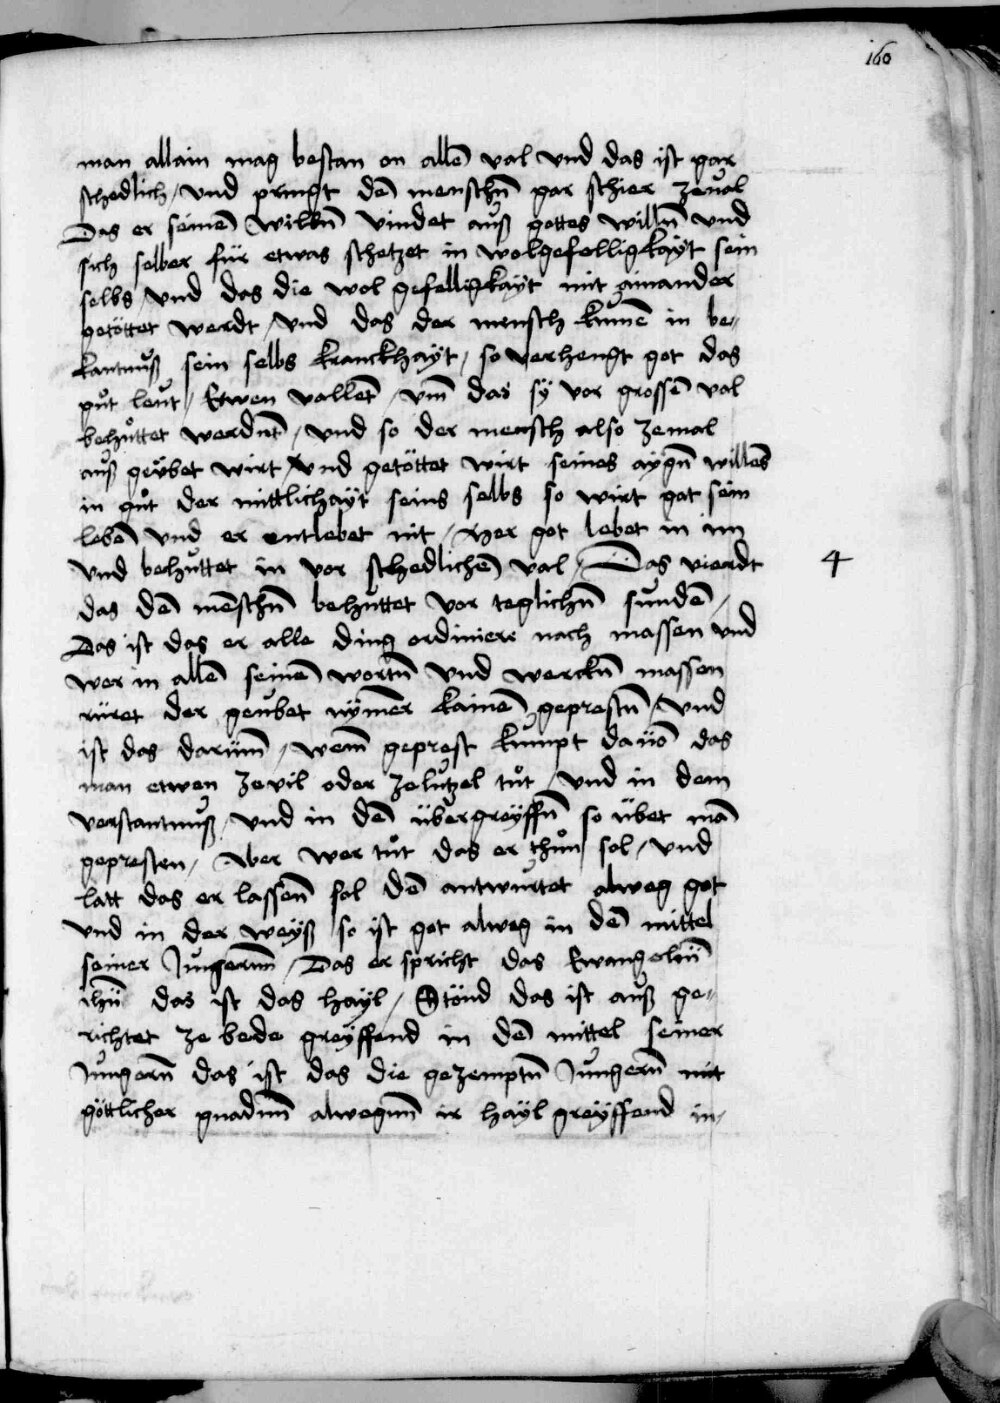 160
man allain mag bestan on allē val vnd das ist gar
schedlich / vnd pringt dē menschn̄ gar schier zeual
Das er seinē willn̄ vindet auß gottes willn̄ vnd
sich selber für etwas schetzet in wolgefelligkaÿt sein
selbs / vnd das die wol gefelligkaÿt mit ainander
getöttet werdt / vnd das der mensch kumē in be„
kantnuß sein selbs kranckhaÿt / so verhengt got das
gůt leut / Etwen vallent / vm̄ das sÿ vor grossē val
behůttet werdnt / vnd so der mensch also zemal
auß geübet wirt / vnd getöttet wirt seines aÿgn̄ willēs
in gůt der mittlichaÿt seins selbs so wirt got sein
lebē vnd er entlebet nit / Mer got lebet in im
vnd behůttet in vor schedlichē val / Das vierdt
4
das dē mēschn̄ behůttet vor teglichn̄ sundē /
Das ist das er alle ding ordiniere nach massen vnd
wer in allē seinē wortn̄ vnd werckn̄ massen
rüret der geubet nÿmer kainē geprestn̄ / vnd
ist das darüm̄ / wenn geprest kumpt dauō das
man etwen zevil oder zelutzel tůt / vnd in dem
verstantnuß / vnd in dē übergreÿffn̄ so übet mā
gepresten / Aber wer tůt das er thůn sol / vnd
latt das er lassen̄ sol dē antwurtet alweg got
vnd in der weÿß so ist got alweg in dē mittel
seiner Jungern̄ / Das er spricht das Ewangeliū
ihū das ist das haÿl / Stönd das ist auß ge„
richtet ze bede greÿffend in dē mittel seiner
Jungern̄ das ist das die gezemptn̄ Jungern̄ mit
göttlicher gnadnn̄ alwegnn̄ ir haÿl greÿffend in /